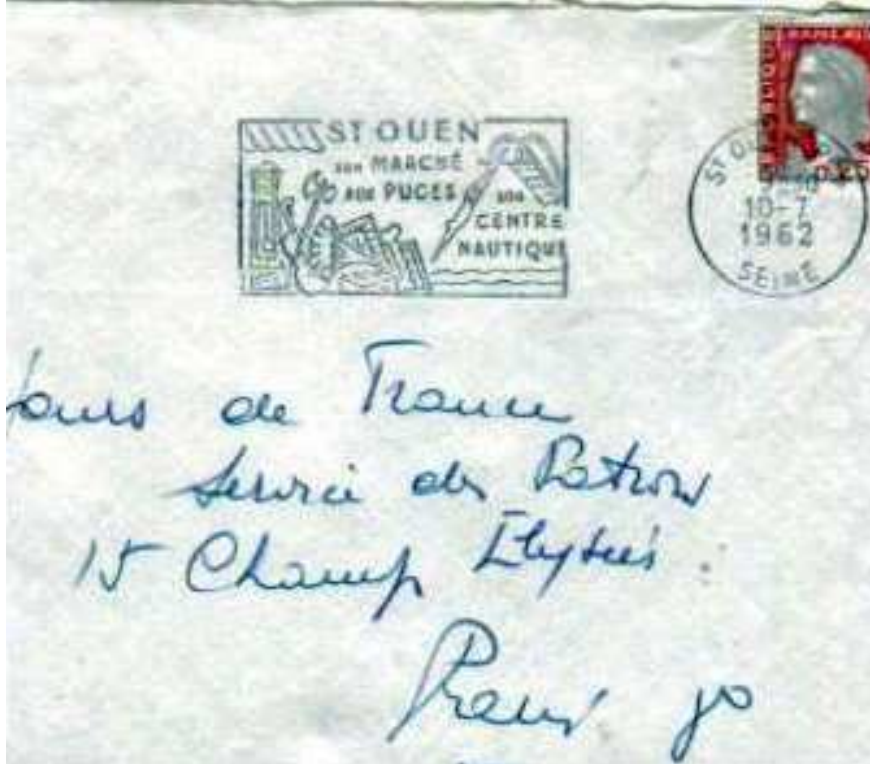 ST OUEN
SON MARCHÉ
AUX PUCES
SON
CENTRE
NAUTIQUE
ST OUEN
10-7
1962
SEINE
0,25
Jours de France
Service des Patrons
15 Champ Elysées
Paris